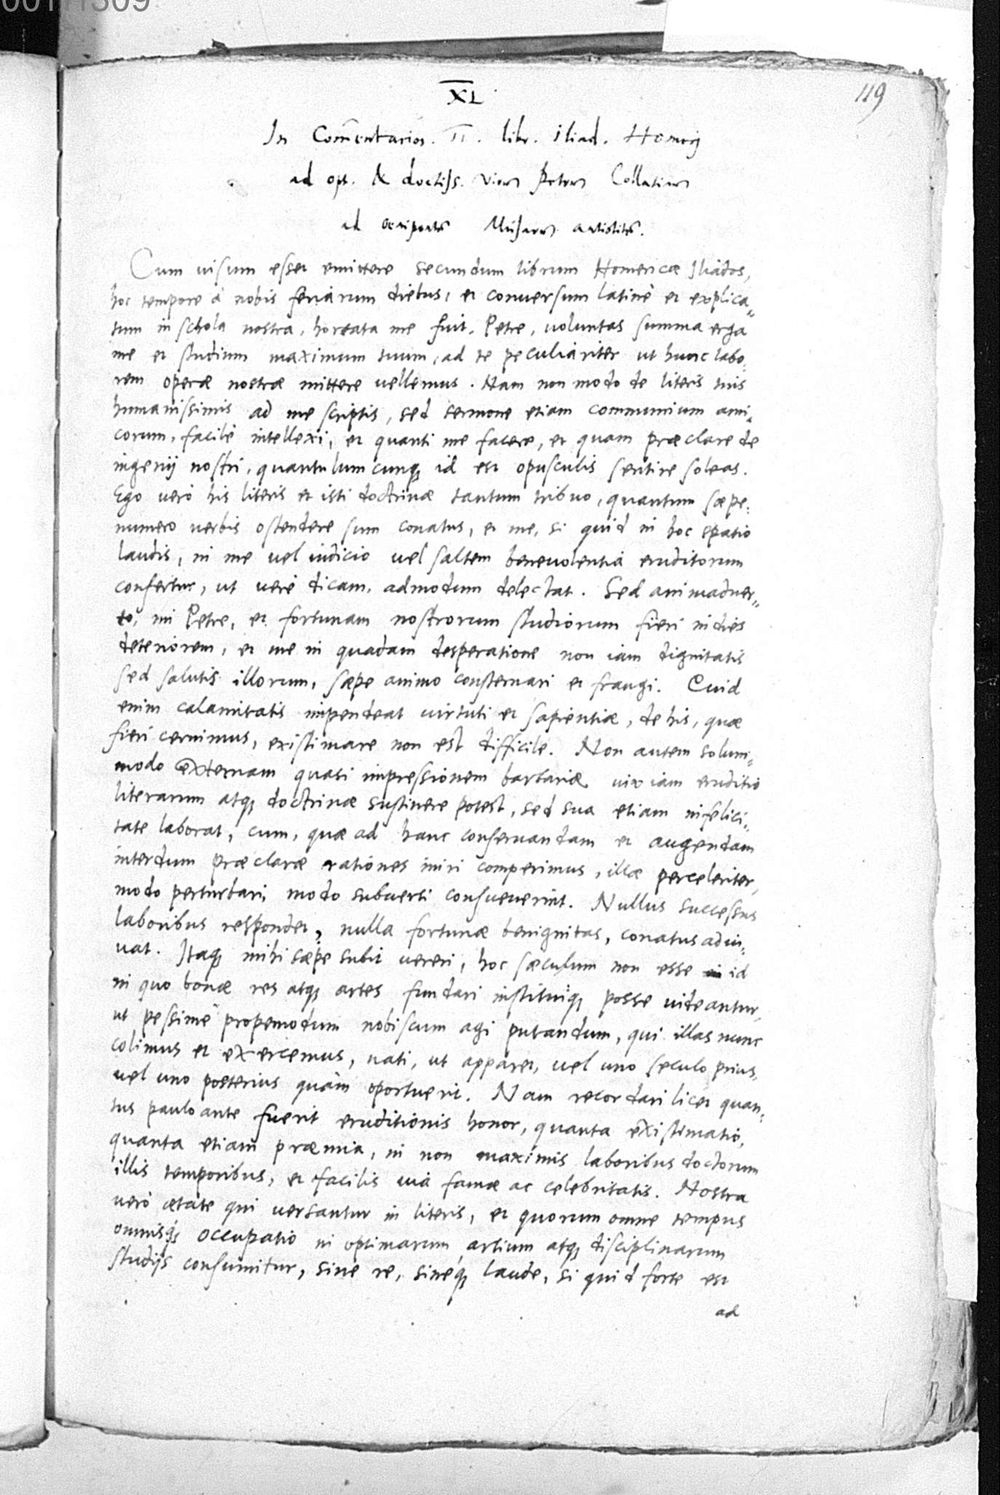 119
XL
In Com̄entarios. II. libr. Iliad. Homerj
ad opt. & doctiss. virum Petrum Collatinum
ad Musarum antistitem.
Cum uisum esset emittere secundum librum Homericæ Iliados,
hoc tempore à nobis feriarum diebus, et conuersum latinè et explica„
tum in schola nostra, hortata me fuit, Petre, uoluntas summa erga
me et studium maximum tuum, ad te peculiariter ut hunc labo„
rem operæ nostræ mittere uellemus. Nam non modo de literis tuis
humanissimis ad me scriptis, sed sermone etiam communium ami„
corum, facilè intellexi, et quanti me facere, et quam præclare de
ingenij nostri, quantulumcunq; id est opusculis sentire soleas.
Ego uerò his literis et isti doctrinæ tantum tribuo, quantum sæpe„
numero uerbis ostendere sum conatus, et me, si quid in hoc spatio
laudis, in me uel iudicio uel saltem beneuolentia eruditorum
confertur, ut uerè dicam, admodum delectat. Sed animaduer„
to, mi Petre, et fortunam nostrorum studiorum fieri indies
deteriorem, et me in quadam desperatione non iam dignitatis
sed salutis illorum, sæpe animo consternari et frangi. Cuid
enim calamitatis impendeat uirtuti et sapientiæ, de his, quæ
fieri cernimus, existimare non est difficile. Non autem solum„
modo externam quasi impressionem barbariæ uix iam eruditio
literarum atq; doctrinæ sustinere potest, sed sua etiam infelici„
tate laborat, cum, quæ ad hanc conseruandam et augendam
interdum præclaræ rationes iniri comperimus, illæ perceleriter,
modo perturbari, modo subuerti consueuerint. Nullus successus
laboribus respondet, nulla fortunæ benignitas, conatus adiu„
uat. Itaq; mihi sæpe subit uereri, hoc sæculum non esse id
in quo bonæ res atq; artes fundari instituiq; posse uideantur,
ut pessimè propemodum nobiscum agi putandum, qui illas nunc
colimus et exercemus, nati, ut apparet, uel uno seculo prius,
uel uno posterius quàm oportuerit. Nam recordari licet quan„
tus paulo ante fuerit eruditionis honor, quanta existimatio,
quanta etiam præmia, in non maximis laboribus doctorum
illis temporibus, et facilis uia famæ ac celebritatis. Nostra
uerò ætate qui uersantur in literis, et quorum omne tempus
omnisq; occupatio in optimarum artium atq; disciplinarum
studijs consumitur, sine re, sineq; laude, si quid forte est
ad